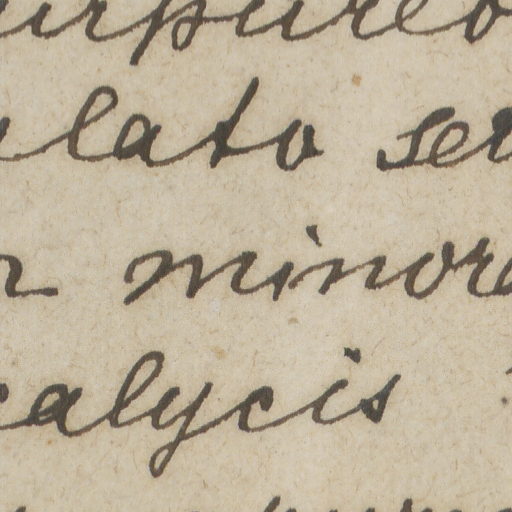 urpureo
lato se
r minore
calycis